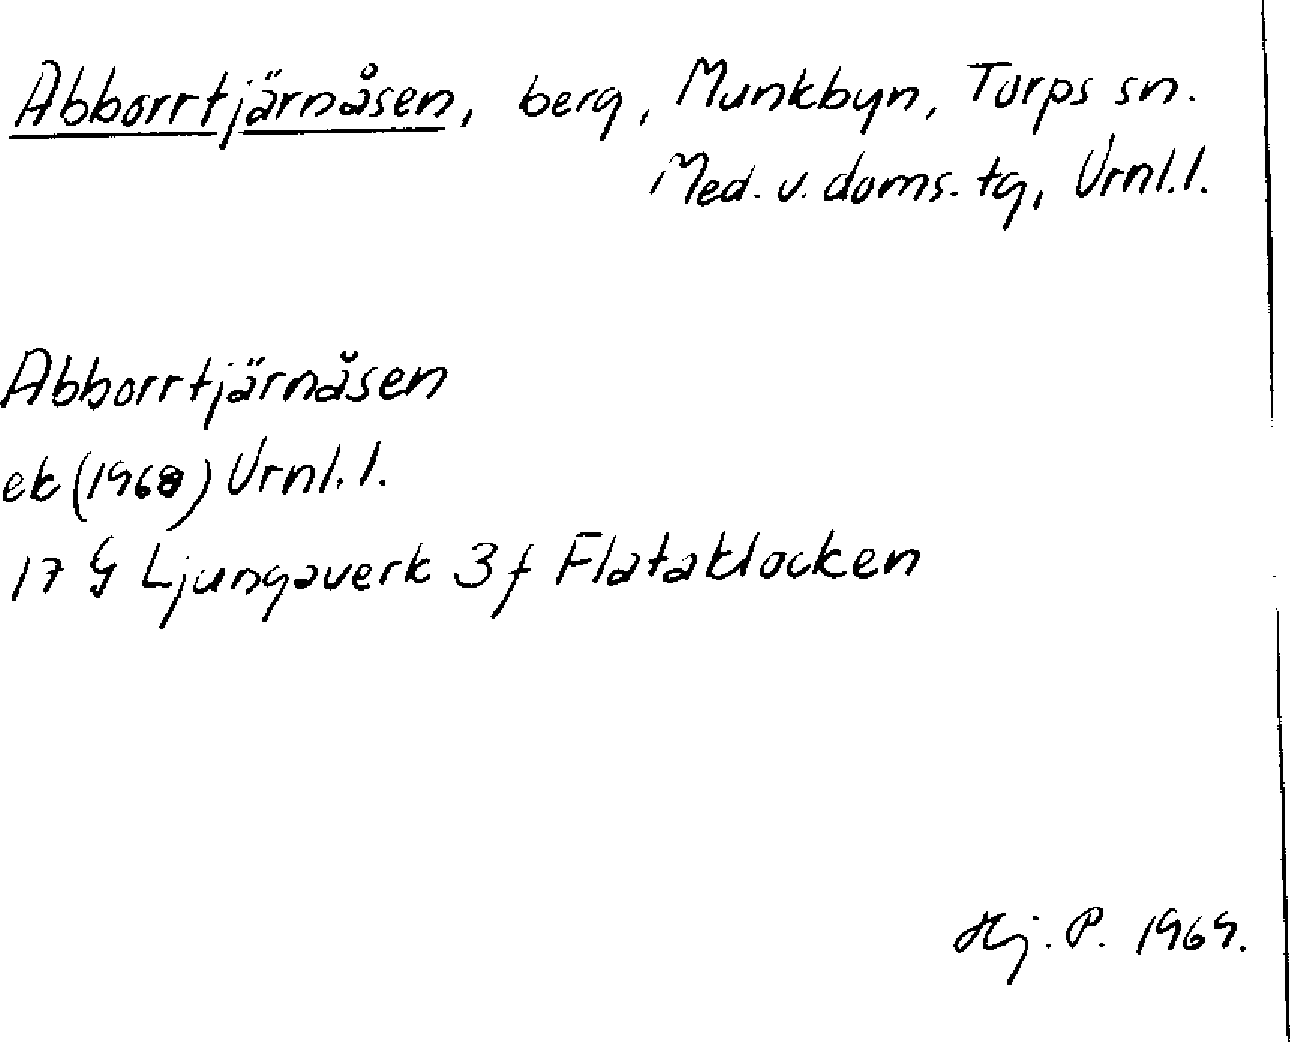 Abborrtjärnåsen, berg, Munkbyn, Torps sn.
Med. v. doms. tg, Vrnl.l.
Abborrtjärnåsen
ek (1968) Vrnl.l.
17 G Ljungaverk 3 f Flataklocken
Hj. P. 1969.